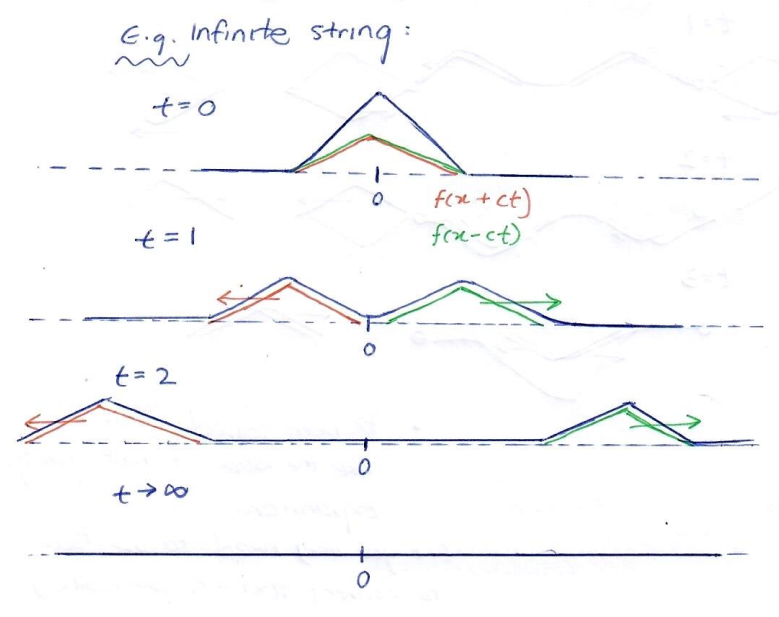 E.g. Infinite string:
t=0
0
f(x+ct)
f(x-ct)
t=1
0
t=2
0
t→∞
0